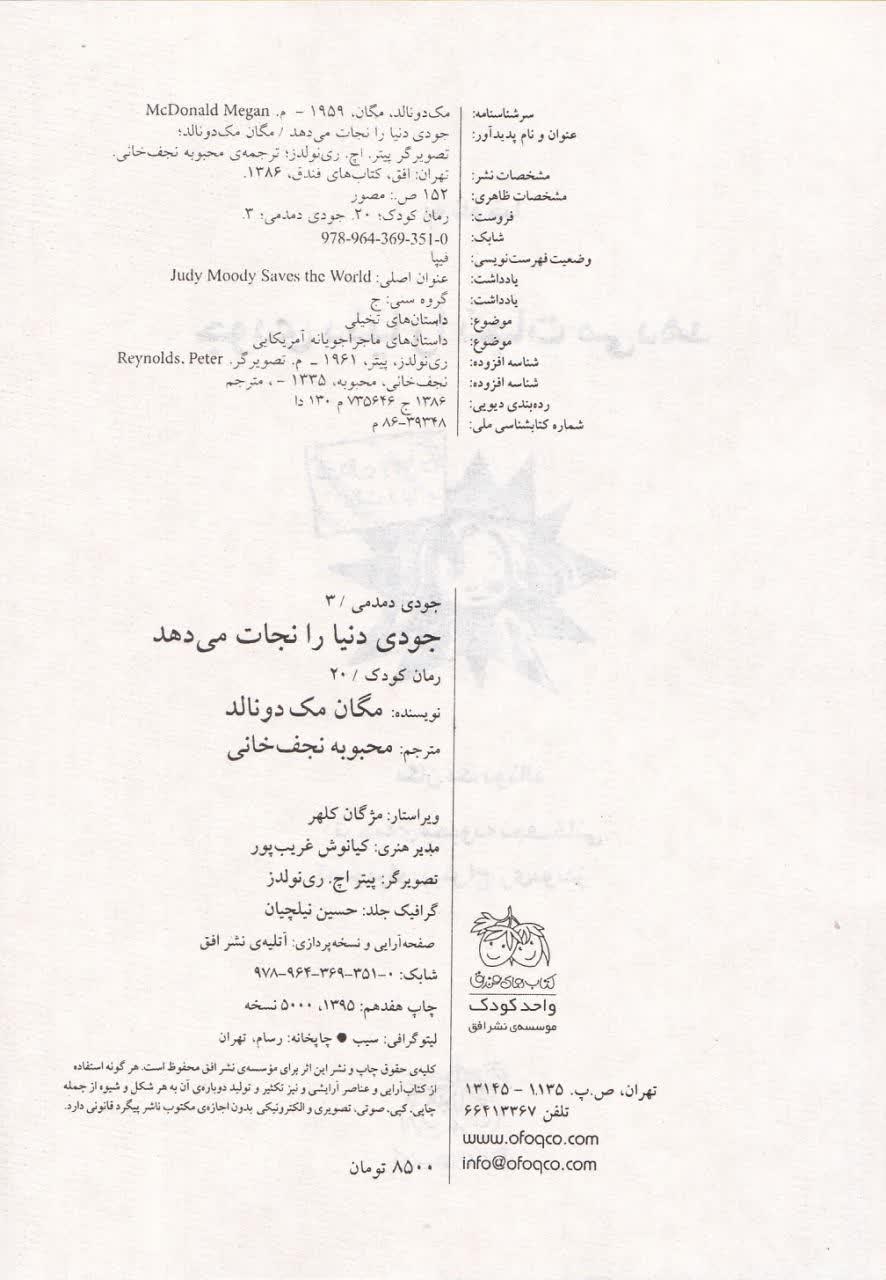 سرشناسه: مک‌دونالد، مگان، ۱۹۵۹ - م. McDonald Megan
عنوان و نام پدیدآور: جودی دنیا را نجات می‌دهد / مگان مک‌دونالد؛
تصویرگر پیتر. اچ. ری‌نولدز؛ ترجمه‌ی محبوبه نجف‌خانی.
مشخصات نشر: تهران: افق، کتاب‌های فندق، ۱۳۸۶.
مشخصات ظاهری: ۱۵۲ ص.: مصور
فروست: رمان کودک؛ ۲۰. جودی دمدمی؛ ۳.
شابک: 978-964-369-351-0
وضعیت فهرست‌نویسی: فیپا
یادداشت: عنوان اصلی: Judy Moody Saves the World
یادداشت: گروه سنی: ج
موضوع: داستان‌های تخیلی
موضوع: داستان‌های ماجراجویانه آمریکایی
شناسه افزوده: ری‌نولدز، پیتر، ۱۹۶۱ - م. تصویرگر. Reynolds. Peter
شناسه افزوده: نجف‌خانی، محبوبه، ۱۳۳۵ - ، مترجم
رده‌بندی دیویی: ۱۳۸۶ ج ۷۳۵۶۴۶ م ۱۳۰ دا
شماره کتابشناسی ملی: ۸۶-۳۹۳۴۸ م
جودی دمدمی / ۳
جودی دنیا را نجات می‌دهد
رمان کودک / ۲۰
نویسنده: مگان مک دونالد
مترجم: محبوبه نجف‌خانی
ویراستار: مژگان کلهر
مدیر هنری: کیانوش غریب‌پور
تصویرگر: پیتر اچ. ری‌نولدز
گرافیک جلد: حسین نیلچیان
صفحه‌آرایی و نسخه‌پردازی: آتلیه‌ی نشر افق
شابک: ۰-۳۵۱-۳۶۹-۹۶۴-۹۷۸
چاپ هفدهم: ۱۳۹۵، ۵۰۰۰ نسخه
لیتوگرافی: سیب ● چاپخانه: رسام، تهران
کلیه‌ی حقوق چاپ و نشر این اثر برای مؤسسه‌ی نشر افق محفوظ است. هر گونه استفاده
از کتاب‌آرایی و عناصر آرایشی و نیز تکثیر و تولید دوباره‌ی آن به هر شکل و شیوه از جمله
چاپی، کپی، صوتی، تصویری و الکترونیکی بدون اجازه‌ی مکتوب ناشر پیگرد قانونی دارد.
۸۵۰۰ تومان
کتاب‌های فندق
واحد کودک
موسسه‌ی نشر افق
تهران، ص.پ. ۱۱۳۵ - ۱۳۱۴۵
تلفن ۶۶۴۱۳۳۶۷
www.ofoqco.com
info@ofoqco.com